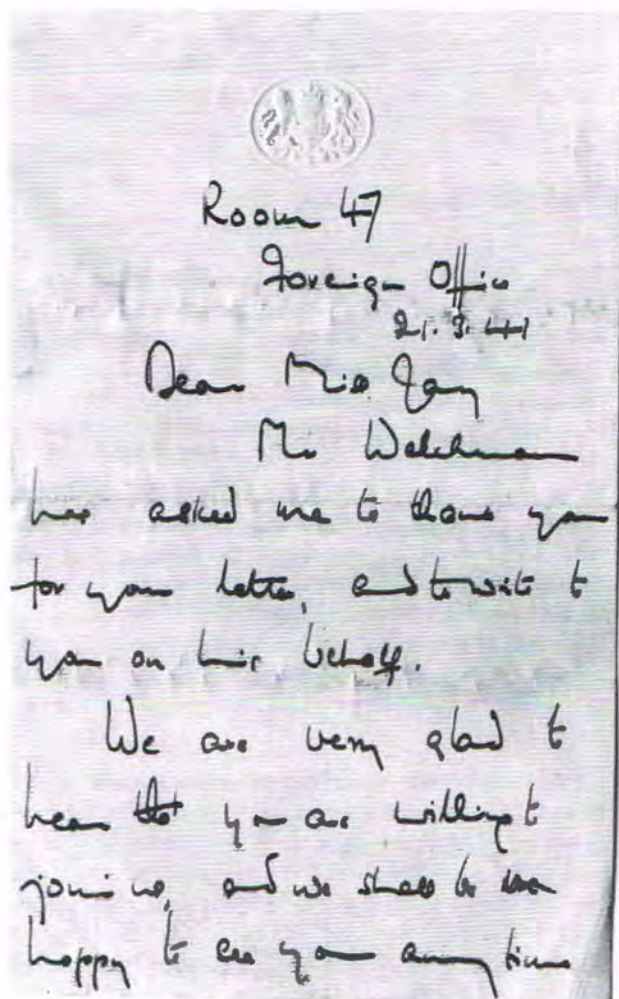 Room 47
Foreign Office
21. 3. 41
Dear Miss
Mr Welchman
has asked me to thank you
for your letter, and to write to
you on his behalf.
We are very glad to
hear that you are willing to
join us, and we shall be
happy to see you any time